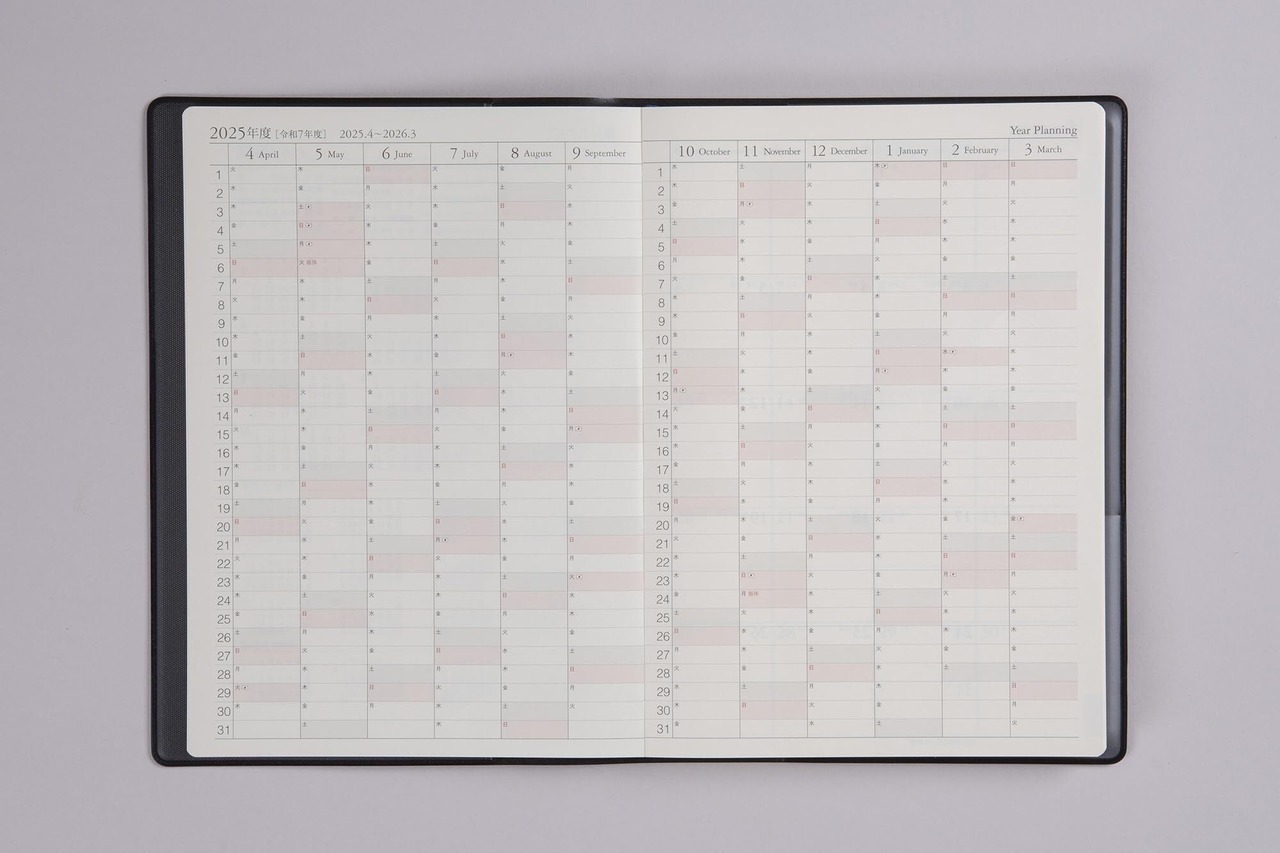 2025年度［令和7年度］ 2025.4～2026.3
4 April 5 May 6 June 7 July 8 August 9 September
1 火 木 日 火 金 月
2 水 金 月 水 土 火
3 木 土 火 木 日 水
4 金 日 水 金 月 木
5 土 月 木 土 火 金
6 日 火 振休 金 日 水 土
7 月 水 土 月 木 日
8 火 木 日 火 金 月
9 水 金 月 水 土 火
10 木 土 火 木 日 水
11 金 日 水 金 月 木
12 土 月 木 土 火 金
13 日 火 金 日 水 土
14 月 水 土 月 木 日
15 火 木 日 火 金 月
16 水 金 月 水 土 火
17 木 土 火 木 日 水
18 金 日 水 金 月 木
19 土 月 木 土 火 金
20 日 火 金 日 水 土
21 月 水 土 月 木 日
22 火 木 日 火 金 月
23 水 金 月 水 土 火
24 木 土 火 木 日 水
25 金 日 水 金 月 木
26 土 月 木 土 火 金
27 日 火 金 日 水 土
28 月 水 土 月 木 日
29 火 木 日 火 金 月
30 水 金 月 水 土 火
31 土 木 日
Year Planning
10 October 11 November 12 December 1 January 2 February 3 March
1 水 土 月 木 日 日
2 木 日 火 金 月 月
3 金 月 水 土 火 火
4 土 火 木 日 水 水
5 日 水 金 月 木 木
6 月 木 土 火 金 金
7 火 金 日 水 土 土
8 水 土 月 木 日 日
9 木 日 火 金 月 月
10 金 月 水 土 火 火
11 土 火 木 日 水 水
12 日 水 金 月 木 木
13 月 木 土 火 金 金
14 火 金 日 水 土 土
15 水 土 月 木 日 日
16 木 日 火 金 月 月
17 金 月 水 土 火 火
18 土 火 木 日 水 水
19 日 水 金 月 木 木
20 月 木 土 火 金 金
21 火 金 日 水 土 土
22 水 土 月 木 日 日
23 木 日 火 金 月 月
24 金 月 振休 水 土 火 火
25 土 火 木 日 水 水
26 日 水 金 月 木 木
27 月 木 土 火 金 金
28 火 金 日 水 土 土
29 水 土 月 木 日
30 木 日 火 金 月
31 金 水 土 火